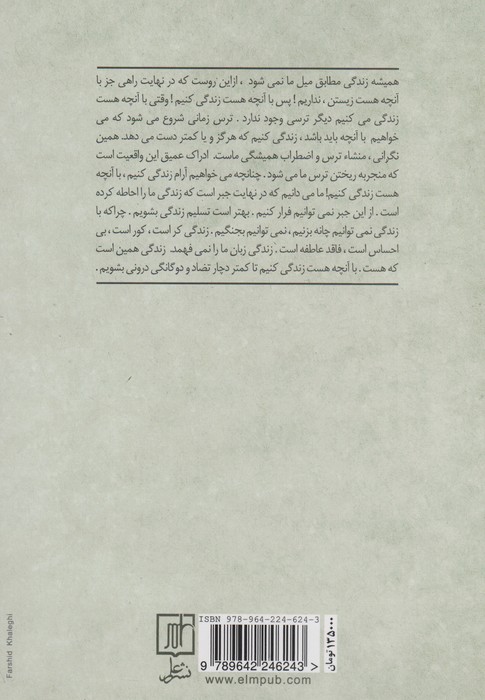 همیشه زندگی مطابق میل ما نمی شود ، ازاین روست که در نهایت راهی جز با
آنچه هست زیستن ، نداریم ! پس با آنچه هست زندگی کنیم ! وقتی با آنچه هست
زندگی می کنیم دیگر ترسی وجود ندارد . ترس زمانی شروع می شود که می
خواهیم با آنچه باید باشد ، زندگی کنیم که هرگز و یا کمتر دست می دهد. همین
نگرانی ، منشاء ترس و اضطراب همیشگی ماست. ادراک عمیق این واقعیت است
که منجربه ریختن ترس ما می شود. چنانچه می خواهیم آرام زندگی کنیم ، با آنچه
هست زندگی کنیم! ما می دانیم که در نهایت جبر است که زندگی ما را احاطه کرده
است . از این جبر نمی توانیم فرار کنیم . بهتر است تسلیم زندگی بشویم . چراکه با
زندگی نمی توانیم چانه بزنیم ، نمی توانیم بجنگیم . زندگی کر است ، کور است ، بی
احساس است ، فاقد عاطفه است . زندگی زبان ما را نمی فهمد. زندگی همین است
که هست . با آنچه هست زندگی کنیم تا کمتر دچار تضاد و دوگانگی درونی بشویم .
Farshid Khaleghi
نشر علم
ISBN 978-964-224-624-3
9 789642 246243
www.elmpub.com
۱۳۵۰۰۰ تومان